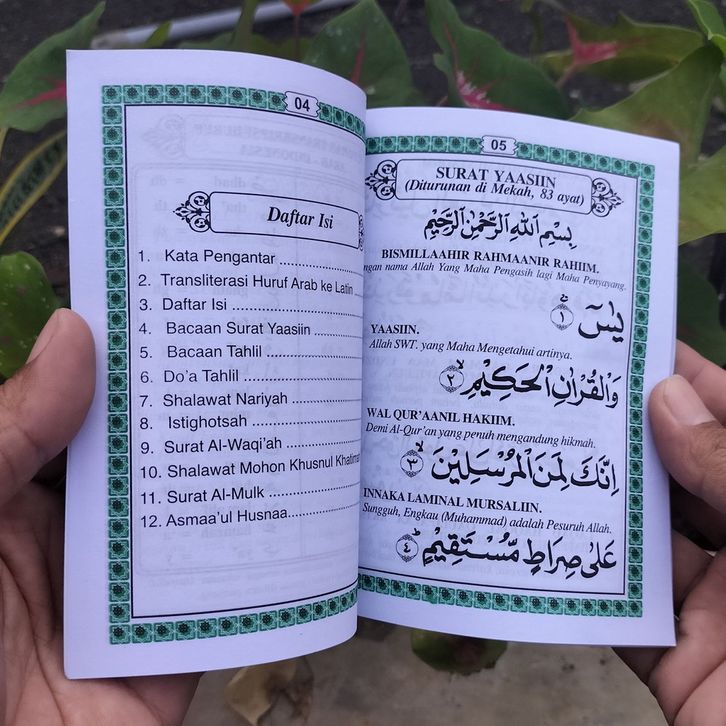 04
Daftar Isi
1. Kata Pengantar ........................
2. Transliterasi Huruf Arab ke Latin ........
3. Daftar Isi ..............................
4. Bacaan Surat Yaasiin ..............
5. Bacaan Tahlil ........................
6. Do'a Tahlil ..........................
7. Shalawat Nariyah ..................
8. Istighotsah ..........................
9. Surat Al-Waqi'ah ..................
10. Shalawat Mohon Khusnul
11. Surat Al-Mulk ......................
12. Asmaa'ul Husnaa..................
05
SURAT YAASIIN
(Diturunan di Mekah, 83 ayat)
بِسْمِ اللهِ الرَّحْمٰنِ الرَّحِيْمِ
BISMILLAAHIR RAHMAANIR RAHIIM.
nama Allah Yang Maha Pengasih lagi Maha Penyayang.
يٰسۤ ۚ ﴿١﴾
YAASIIN.
Allah SWT. yang Maha Mengetahui artinya.
وَالْقُرْاٰنِ الْحَكِيْمِ ۙ ﴿٢﴾
WAL QUR'AANIL HAKIIM.
Demi Al-Qur'an yang penuh mengandung hikmah.
اِنَّكَ لَمِنَ الْمُرْسَلِيْنَ ۙ ﴿٣﴾
INNAKA LAMINAL MURSALIIN.
Sungguh, Engkau (Muhammad) adalah Pesuruh Allah.
عَلٰى صِرَاطٍ مُّسْتَقِيْمٍ ۗ ﴿٤﴾